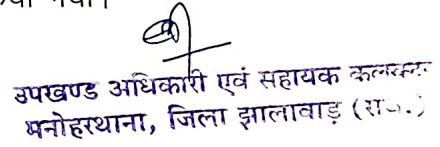 उपखण्ड अधिकारी एवं सहायक कलक्टर
मनोहरथाना, जिला झालावाड़ (रा